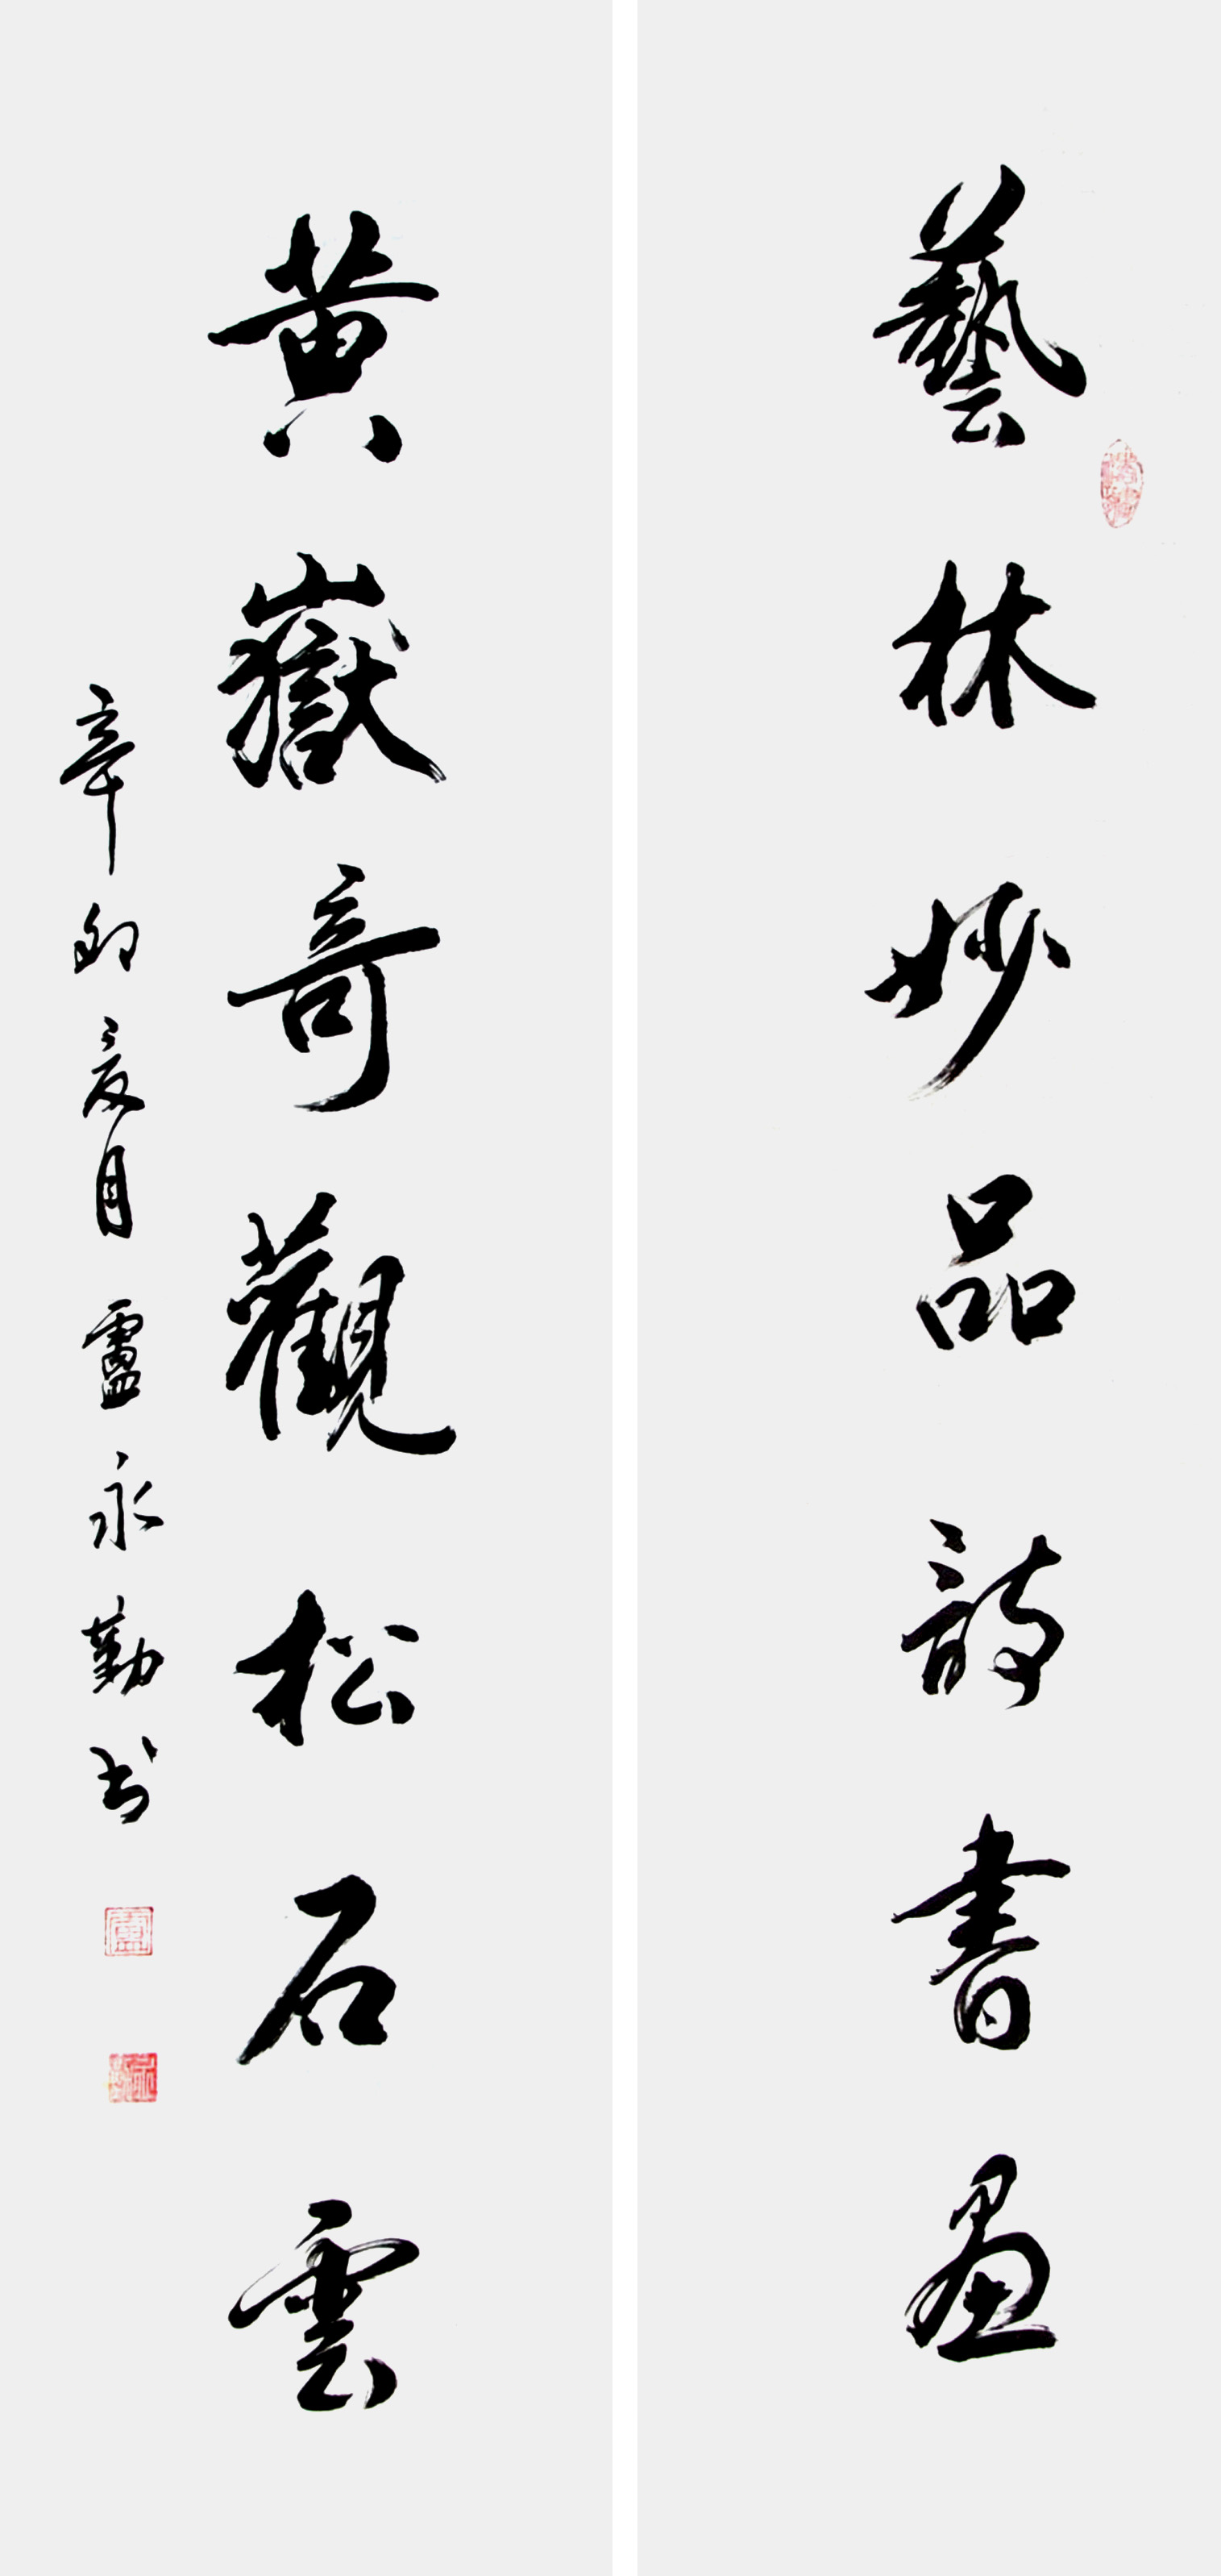 藝林妙品詩書畫
黃嶽奇觀松石雲
辛卯夏月盧永勤书